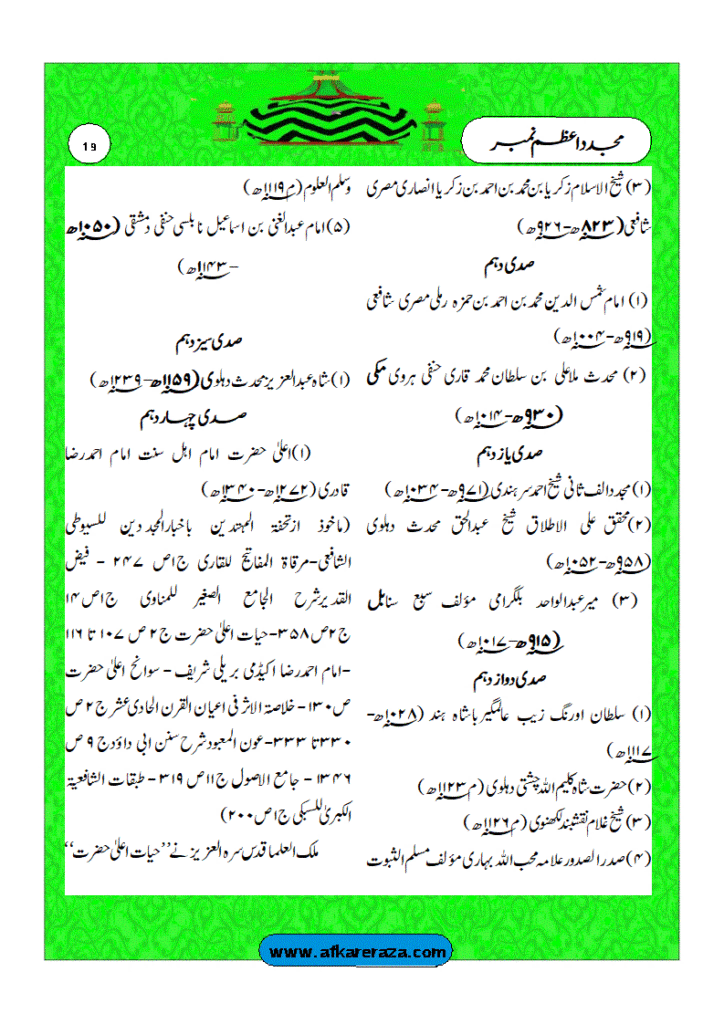 مجدد اعظم نمبر
19
(۳) شیخ الاسلام زکریا بن محمد بن احمد بن زکریا انصاری مصری
شافعی (۸۲۳ھ–۹۲۶ھ)
صدی دہم
(۱) امام شمس الدین محمد بن احمد بن حمزہ رملی مصری شافعی
(۹۱۹ھ–۱۰۰۴ھ)
(۲) محدث ملا علی بن سلطان محمد قاری حنفی ہروی مکی
(۹۳۰ھ–۱۰۱۴ھ)
صدی یازدہم
(۱) مجدد الف ثانی شیخ احمد سرہندی (۹۷۱ھ–۱۰۳۴ھ)
(۲) محقق علی الاطلاق شیخ عبدالحق محدث دہلوی
(۹۵۸ھ–۱۰۵۲ھ)
(۳) میر عبدالواحد بلگرامی مؤلف سبع سنابل
(۹۱۵ھ–۱۰۱۷ھ)
صدی دوازدہم
(۱) سلطان اورنگ زیب عالمگیر بادشاہ ہند (۱۰۲۸ھ–
۱۱۱۷ھ)
(۲) حضرت شاہ کلیم اللہ چشتی دہلوی (م ۱۱۲۳ھ)
(۳) شیخ غلام نقشبند لکھنوی (م ۱۱۲۶ھ)
(۴) صدر الصدور علامہ محب اللہ بہاری مؤلف مسلم الثبوت
وسلم العلوم (م ۱۱۱۹ھ)
(۵) امام عبدالغنی بن اسماعیل نابلسی حنفی دمشقی (۱۰۵۰ھ
–۱۱۴۳ھ)
صدی سیزدہم
(۱) شاہ عبدالعزیز محدث دہلوی (۱۱۵۹ھ–۱۲۳۹ھ)
صدی چہاردہم
(۱) اعلیٰ حضرت امام اہل سنت امام احمد رضا
قادری (۱۲۷۲ھ–۱۳۴۰ھ)
(ماخوذ از تحفۃ المہتدین باخبار المجددین للسیوطی
الشافعی–مرقاۃ المفاتیح للقاری ج۱ص ۲۴۷ – فیض
القدیر شرح الجامع الصغیر للمناوی ج۱ص ۱۴
ج۲ص ۳۵۸–حیات اعلیٰ حضرت ج۲ ص ۱۰۷ تا ۱۱۶
–امام احمد رضا اکیڈمی بریلی شریف – سوانح اعلیٰ حضرت
ص۱۳۰ – خلاصۃ الاثر فی اعیان القرن الحادی عشر ج۲ ص
۳۳۰ تا ۳۳۳–عون المعبود شرح سنن ابی داؤد ج۹ ص
۱۳۴۶ – جامع الاصول ج۱۱ص ۳۱۹ – طبقات الشافعیۃ
الکبریٰ للسبکی ج۱ص ۲۰۰)
ملک العلما قدس سرہ العزیز نے ’’حیات اعلیٰ حضرت‘‘
www.afkareraza.com